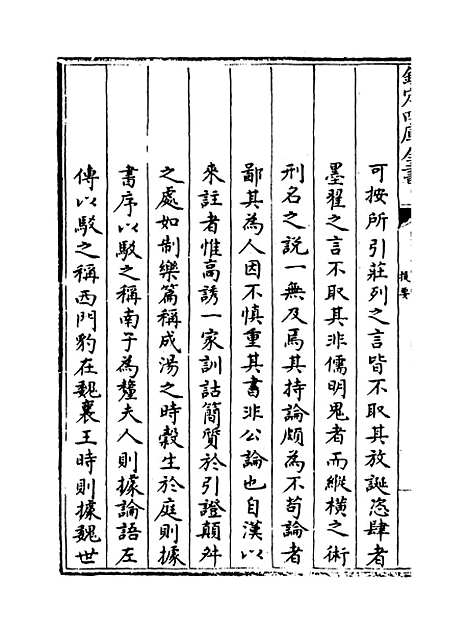 欽定四庫全書
提要
可按所引莊列之言皆不取其放誕恣肆者
墨翟之言不取其非儒明鬼者而縱横之術
刑名之說一無及焉其持論頗為不苟論者
鄙其為人因不慎重其書非公論也自漢以
來註者惟高誘一家訓詁簡質於引證顛舛
之處如制樂篇稱成湯之時榖生於庭則據
書序以駁之稱南子為釐夫人則據論語左
傳以駁之稱西門豹在魏襄王時則據魏世